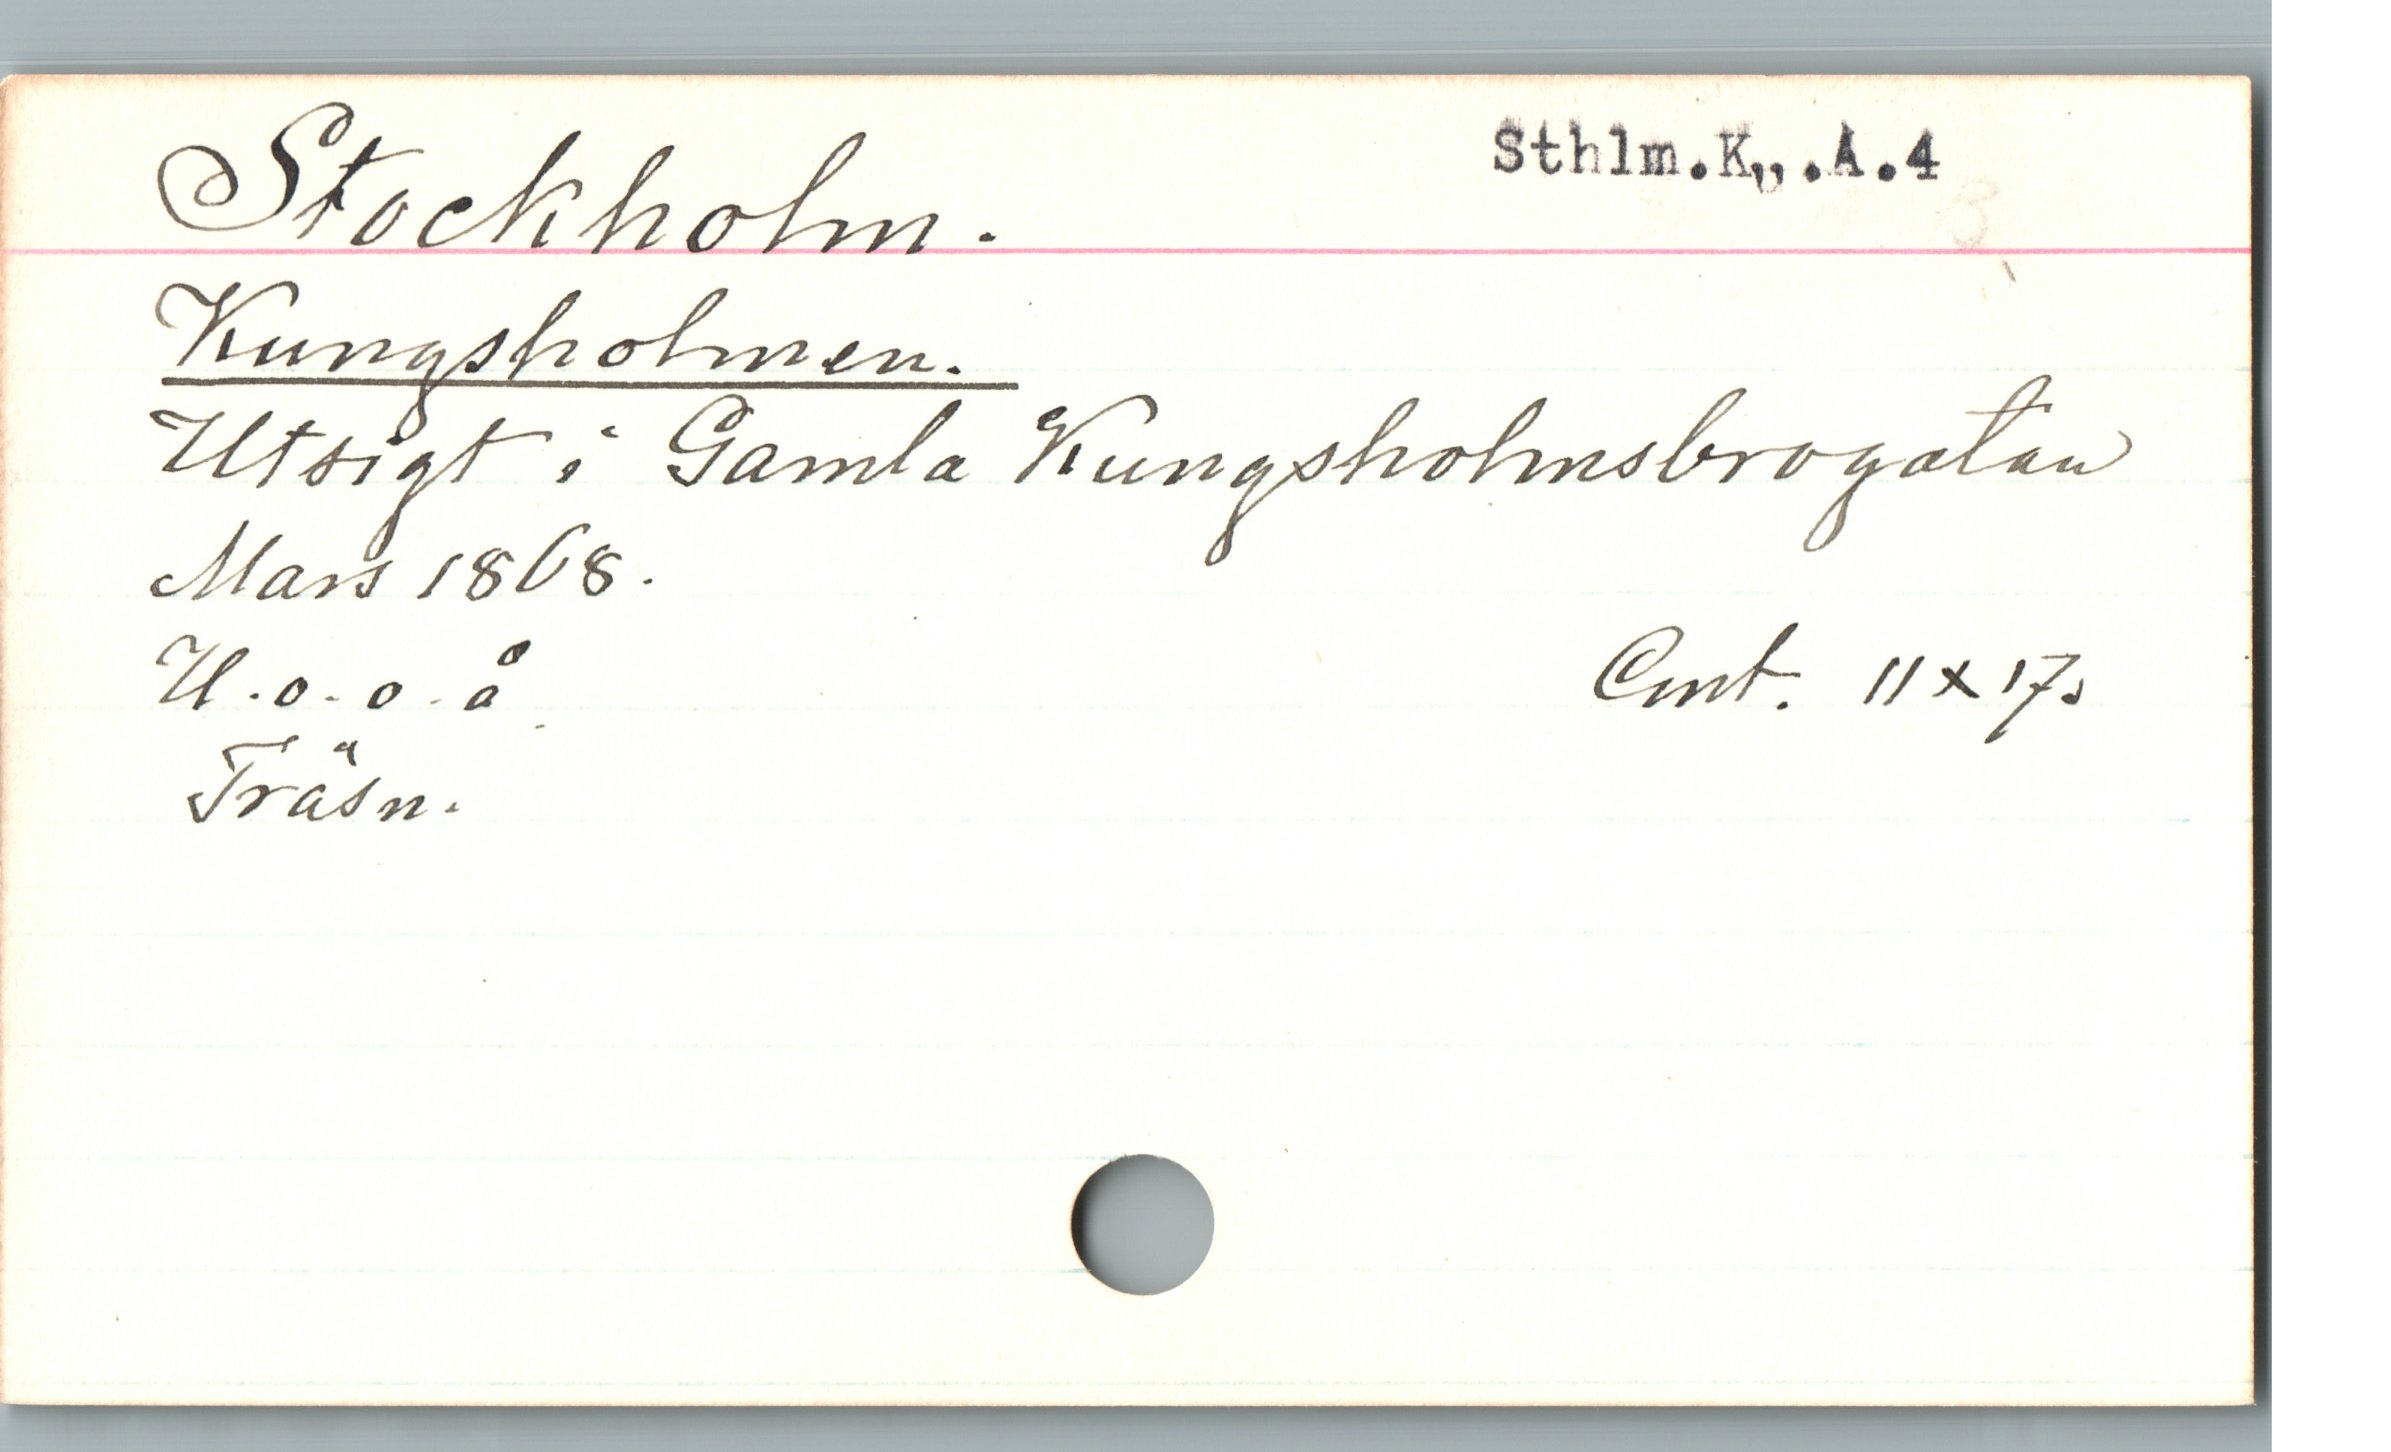 Stockholm.
Sthlm.K,,.A.4
Kungsholmen.
Utsigt i Gamla Kungsholmsbrogatan
Mars 1868.
U.o.o.å
Cmt. 11 x 17.
Träsn.